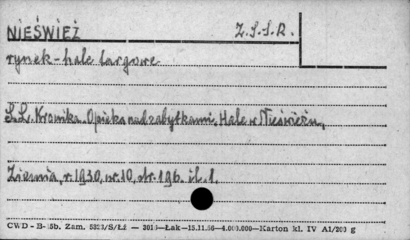 NIEŚWIEŻ Z.S.S.R.
rynek - hale targowe
S.L. Kronika. Opieka nad zabytkami. Hale w Nieświeżu,
Ziemia, r. 1930, nr. 10, str. 196. il. 1.
CWD - B- 5b. Zam. — Łak—15.11.56—4.000.000—Karton kl. IV A1/200 g